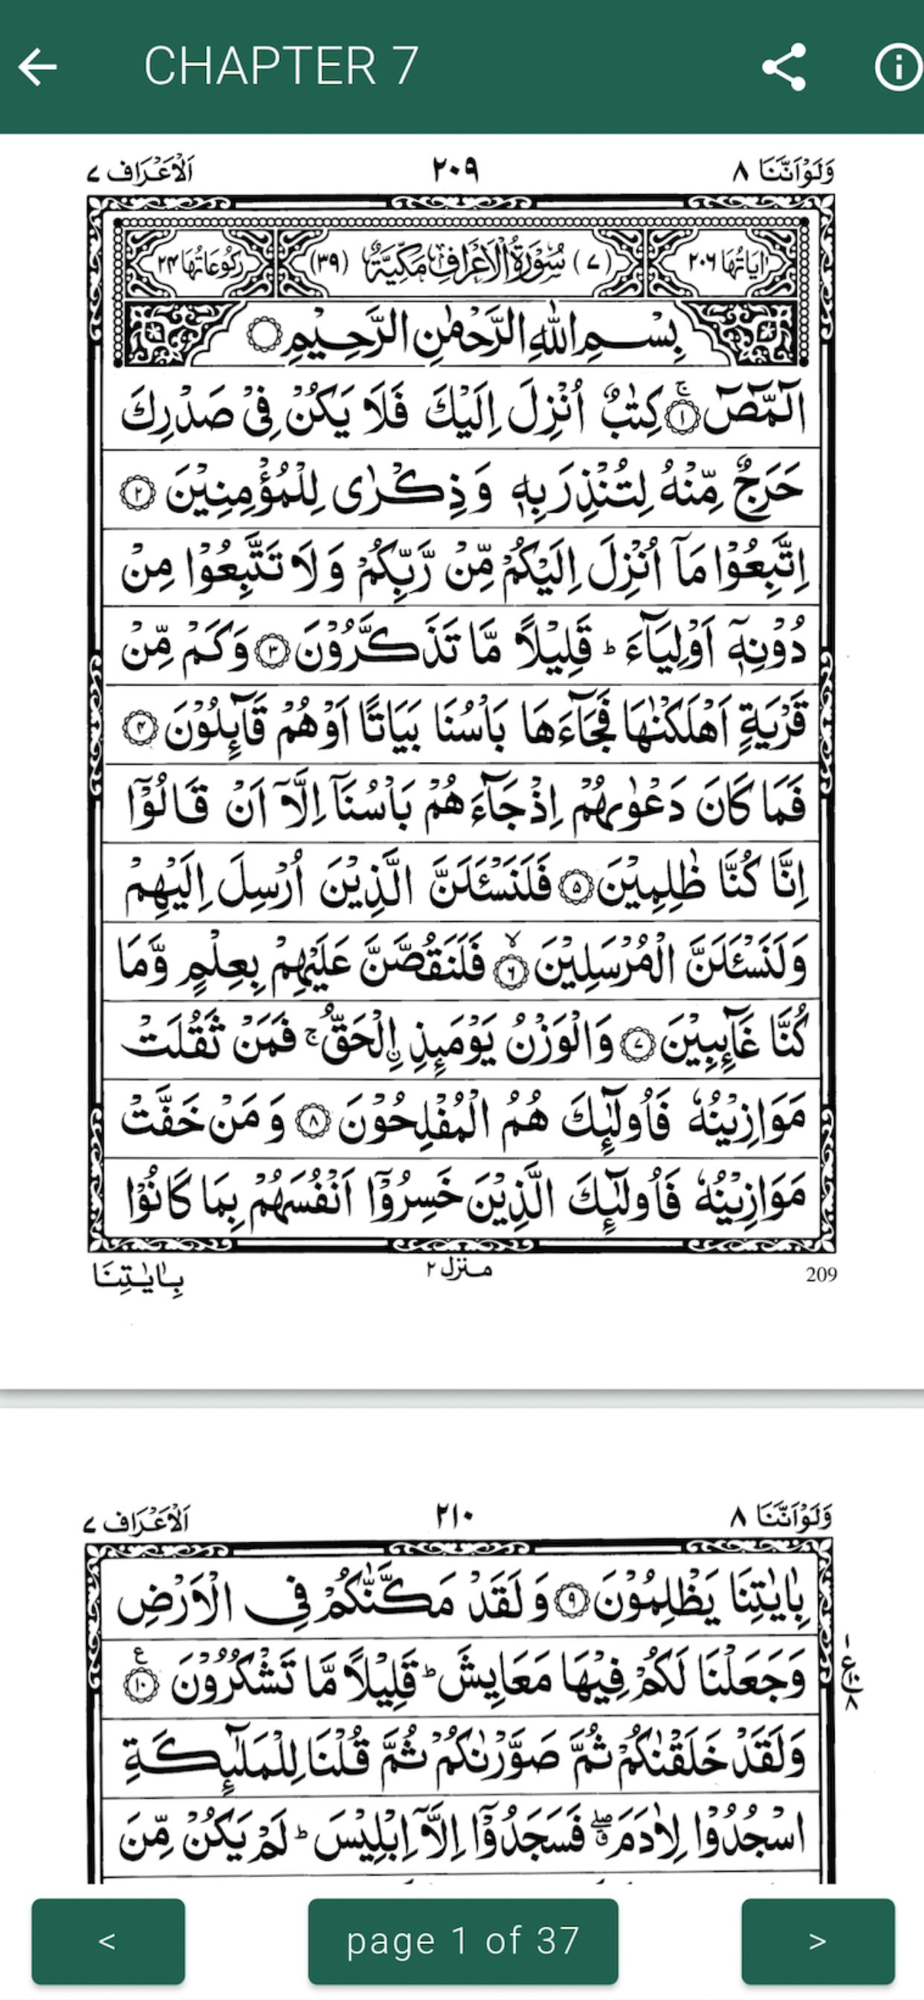 CHAPTER 7
وَلَوْاَنَّنَا ٨
٢٠٩
اَلْاَعْرَاف ٧
اٰيَاتُهَا ٢٠٦
(٧) سُوْرَةُ الْاَعْرَافِ مَكِّيَّةٌ (٣٩)
رُكُوْعَاتُهَا ٢٤
بِسْمِ اللّٰهِ الرَّحْمٰنِ الرَّحِيْمِ
الٓمّٓصٓ ۚ ﴿١﴾ كِتٰبٌ اُنْزِلَ اِلَيْكَ فَلَا يَكُنْ فِيْ صَدْرِكَ
حَرَجٌ مِّنْهُ لِتُنْذِرَ بِهٖ وَذِكْرٰى لِلْمُؤْمِنِيْنَ ﴿٢﴾
اِتَّبِعُوْا مَآ اُنْزِلَ اِلَيْكُمْ مِّنْ رَّبِّكُمْ وَلَا تَتَّبِعُوْا مِنْ
دُوْنِهٖٓ اَوْلِيَآءَ ؕ قَلِيْلًا مَّا تَذَكَّرُوْنَ ﴿٣﴾ وَكَمْ مِّنْ
قَرْيَةٍ اَهْلَكْنٰهَا فَجَآءَهَا بَاْسُنَا بَيَاتًا اَوْ هُمْ قَآئِلُوْنَ ﴿٤﴾
فَمَا كَانَ دَعْوٰىهُمْ اِذْ جَآءَهُمْ بَاْسُنَآ اِلَّآ اَنْ قَالُوْٓا
اِنَّا كُنَّا ظٰلِمِيْنَ ﴿٥﴾ فَلَنَسْـَٔلَنَّ الَّذِيْنَ اُرْسِلَ اِلَيْهِمْ
وَلَنَسْـَٔلَنَّ الْمُرْسَلِيْنَ ۙ ﴿٦﴾ فَلَنَقُصَّنَّ عَلَيْهِمْ بِعِلْمٍ وَّمَا
كُنَّا غَآئِبِيْنَ ﴿٧﴾ وَالْوَزْنُ يَوْمَئِذِ ۨالْحَقُّ ۚ فَمَنْ ثَقُلَتْ
مَوَازِيْنُهٗ فَاُولٰٓئِكَ هُمُ الْمُفْلِحُوْنَ ﴿٨﴾ وَمَنْ خَفَّتْ
مَوَازِيْنُهٗ فَاُولٰٓئِكَ الَّذِيْنَ خَسِرُوْٓا اَنْفُسَهُمْ بِمَا كَانُوْا
209
منزل ٢
بِاٰيٰتِنَا
وَلَوْاَنَّنَا ٨
٢١٠
اَلْاَعْرَاف ٧
بِاٰيٰتِنَا يَظْلِمُوْنَ ﴿٩﴾ وَلَقَدْ مَكَّنّٰكُمْ فِي الْاَرْضِ
وَجَعَلْنَا لَكُمْ فِيْهَا مَعَايِشَ ؕ قَلِيْلًا مَّا تَشْكُرُوْنَ ﴿١٠﴾ ع
وَلَقَدْ خَلَقْنٰكُمْ ثُمَّ صَوَّرْنٰكُمْ ثُمَّ قُلْنَا لِلْمَلٰٓئِكَةِ
اسْجُدُوْا لِاٰدَمَ ۖ فَسَجَدُوْٓا اِلَّآ اِبْلِيْسَ ؕ لَمْ يَكُنْ مِّنَ
<
page 1 of 37
>